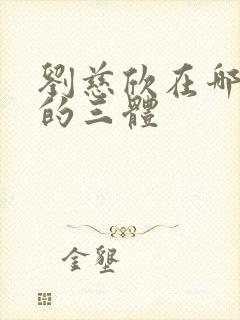 劉慈欣在哪
的三體
金墾